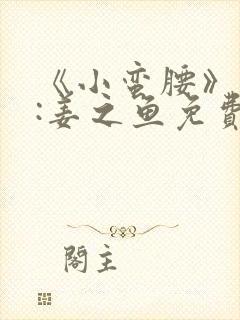 《小蛮腰》
:姜之鱼免費
閣主